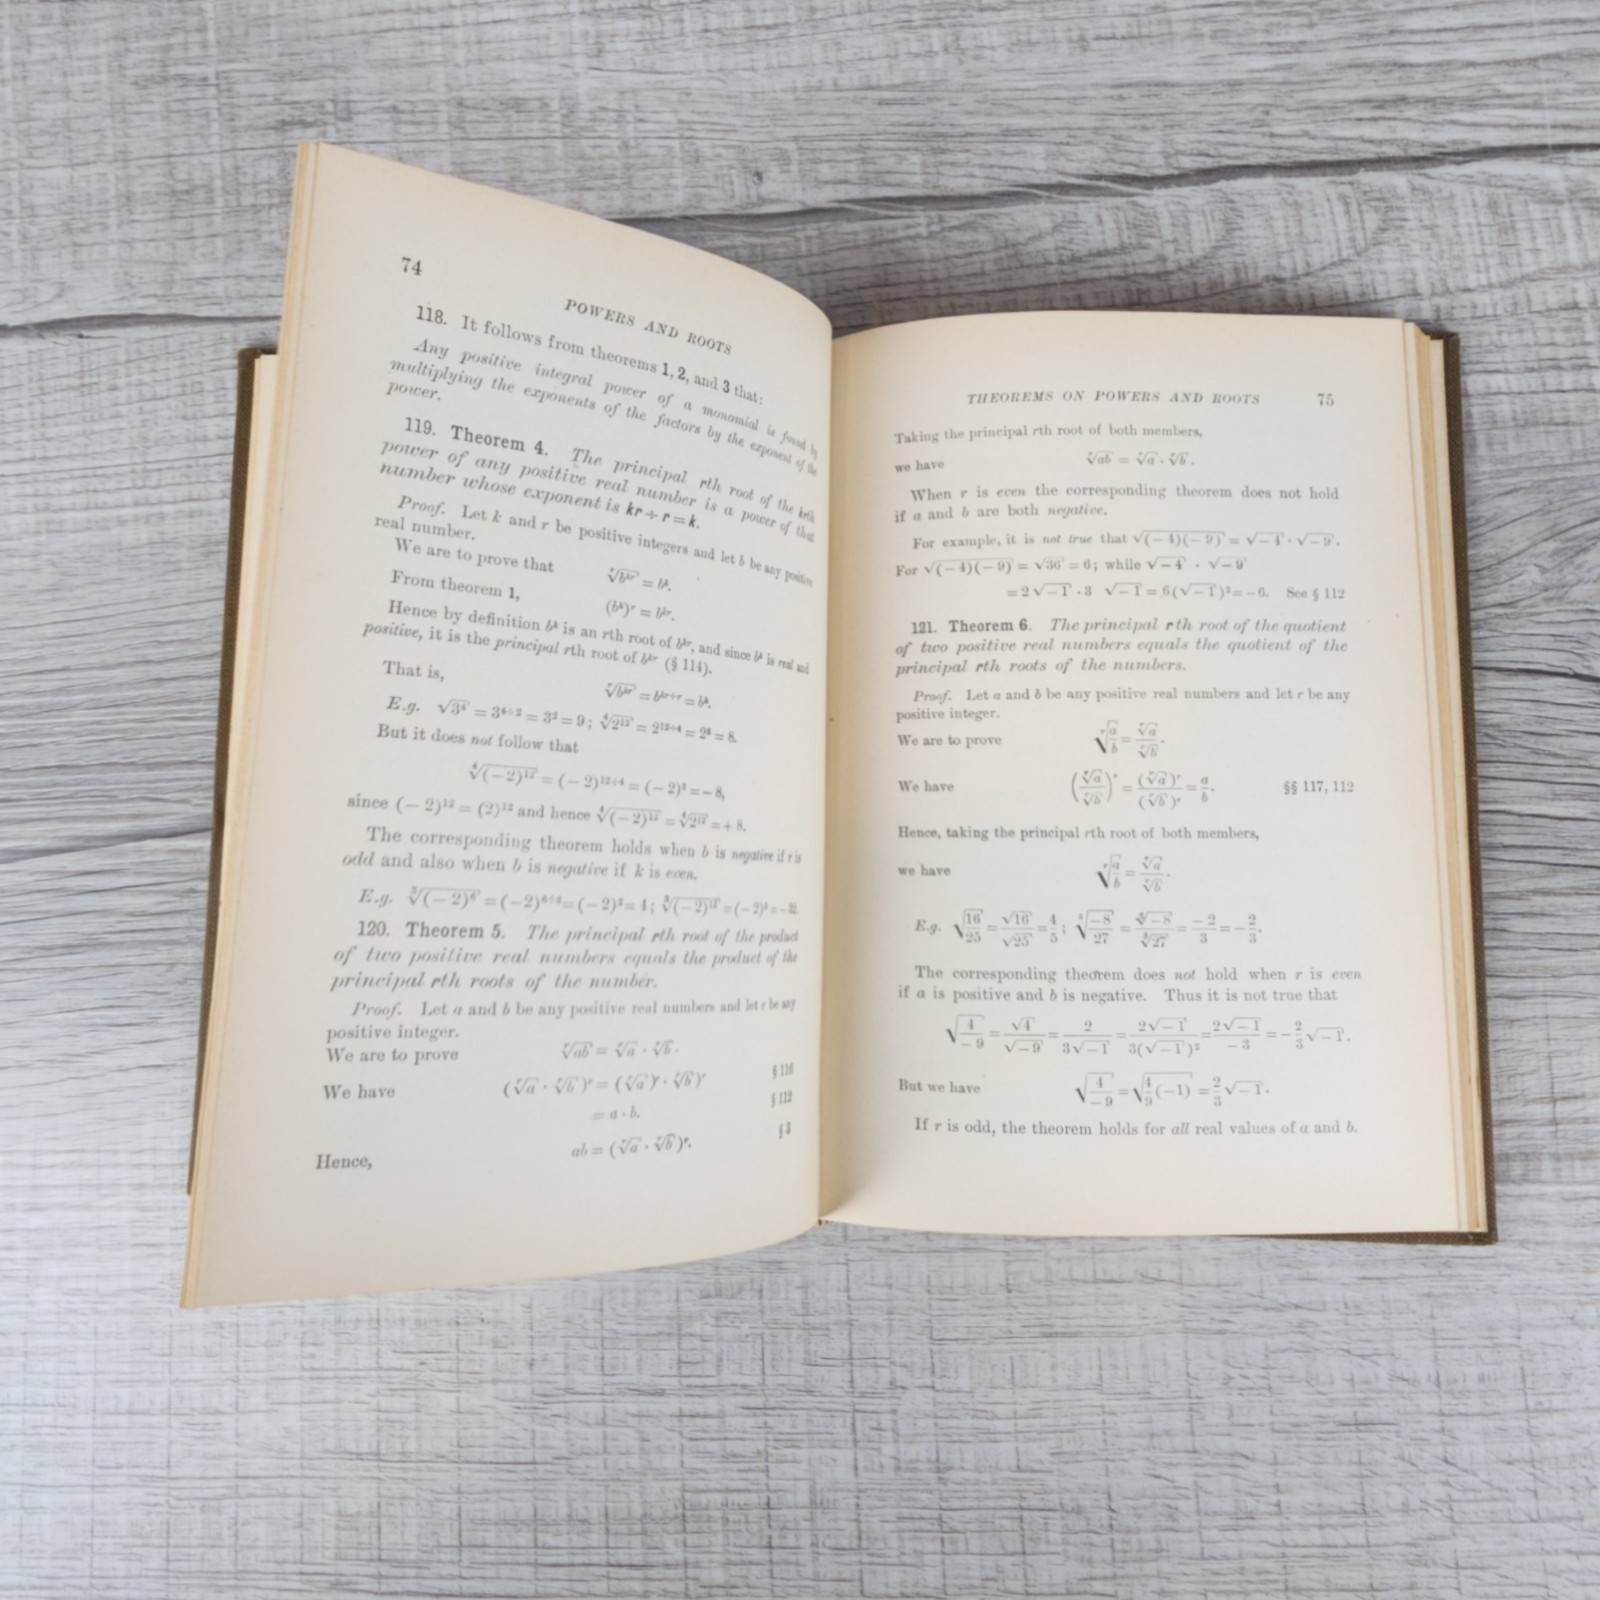 74
POWERS AND ROOTS
118. It follows from theorems 1, 2, and 3 that:
Any positive integral power of a monomial is found by
multiplying the exponents of the factors by the exponent of the
power.
119. Theorem 4. The principal rth root of the krth
power of any positive real number is a power of that
number whose exponent is kr ÷ r = k.
Proof. Let k and r be positive integers and let b be any positive
real number.
We are to prove that ʳ√bᵏʳ = bᵏ.
From theorem 1, (bᵏ)ʳ = bᵏʳ.
Hence by definition bᵏ is an rth root of bᵏʳ, and since bᵏ is real and
positive, it is the principal rth root of bᵏʳ (§ 114).
That is, ʳ√bᵏʳ = bᵏʳ÷ʳ = bᵏ.
E.g. √3⁴ = 3⁴÷² = 3² = 9; ⁴√2¹² = 2¹²÷⁴ = 2³ = 8.
But it does not follow that
⁴√(−2)¹² = (−2)¹²÷⁴ = (−2)³ = −8,
since (−2)¹² = (2)¹² and hence ⁴√(−2)¹² = ⁴√2¹² = +8.
The corresponding theorem holds when b is negative if r is
odd and also when b is negative if k is even.
E.g. ³√(−2)⁶ = (−2)⁶÷³ = (−2)² = 4; ³√(−2)¹⁵ = (−2)⁵ = −32.
120. Theorem 5. The principal rth root of the product
of two positive real numbers equals the product of the
principal rth roots of the number.
Proof. Let a and b be any positive real numbers and let r be any
positive integer.
We are to prove ʳ√ab = ʳ√a · ʳ√b.
We have (ʳ√a · ʳ√b)ʳ = (ʳ√a)ʳ · (ʳ√b)ʳ § 116
= a · b. § 112
Hence, ab = (ʳ√a · ʳ√b)ʳ. § 3
THEOREMS ON POWERS AND ROOTS 75
Taking the principal rth root of both members,
we have ʳ√ab = ʳ√a · ʳ√b.
When r is even the corresponding theorem does not hold
if a and b are both negative.
For example, it is not true that √(−4)(−9) = √−4 · √−9.
For √(−4)(−9) = √36 = 6; while √−4 · √−9
= 2√−1 · 3 √−1 = 6(√−1)² = −6. See § 112
121. Theorem 6. The principal rth root of the quotient
of two positive real numbers equals the quotient of the
principal rth roots of the numbers.
Proof. Let a and b be any positive real numbers and let r be any
positive integer.
We are to prove ʳ√(a/b) = ʳ√a/ʳ√b.
We have (ʳ√a/ʳ√b)ʳ = (ʳ√a)ʳ/(ʳ√b)ʳ = a/b. §§ 117, 112
Hence, taking the principal rth root of both members,
we have ʳ√(a/b) = ʳ√a/ʳ√b.
E.g. √(16/25) = √16/√25 = 4/5; ³√(−8/27) = ³√−8/³√27 = −2/3 = −2/3.
The corresponding theorem does not hold when r is even
if a is positive and b is negative. Thus it is not true that
√(4/−9) = √4/√−9 = 2/3√−1 = 2√−1/3(√−1)² = 2√−1/−3 = −2/3√−1.
But we have √(4/−9) = √(4/9(−1)) = 2/3√−1.
If r is odd, the theorem holds for all real values of a and b.